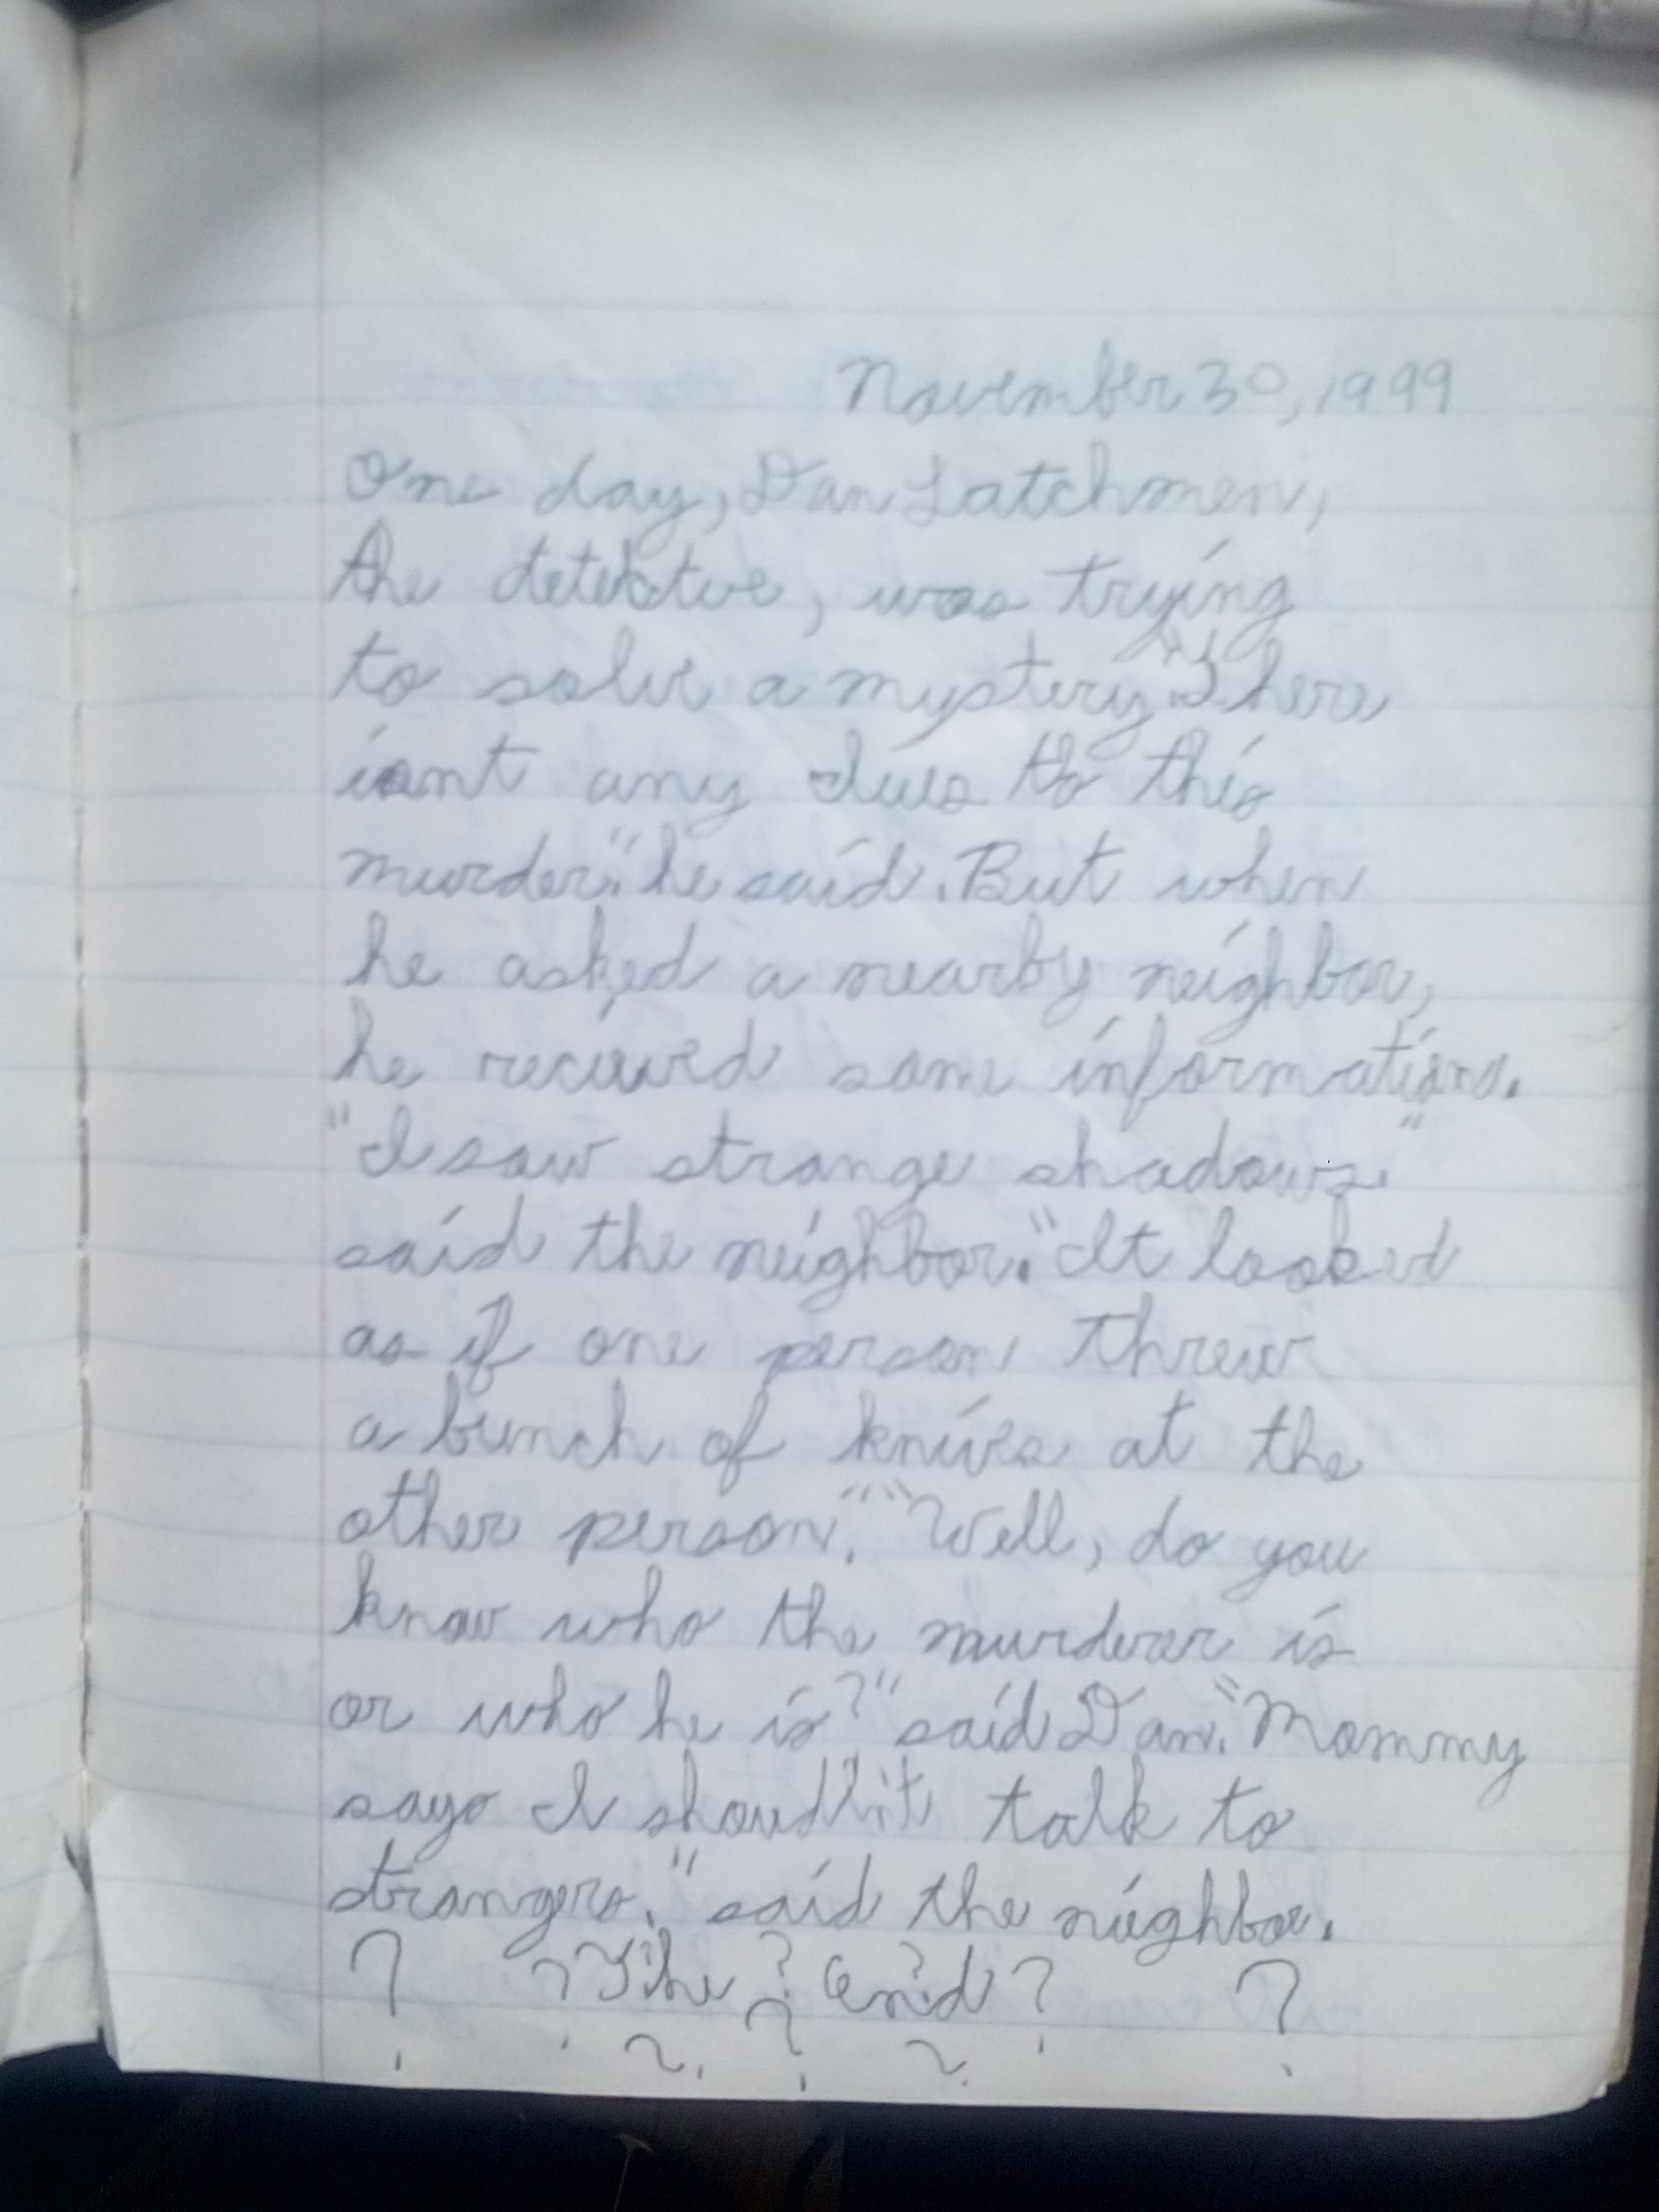 November 30, 1999
One day, Dan Latchmen,
the detektive, was trying
to solve a mystery. "There
isnt any clues to this
murder." he said. But when
he asked a nearby neighbor,
he recieved some informations.
"I saw strange shadows."
said the neighbor. "It looked
as if one person threw
a bunch of knives at the
other person." "Well, do you
know who the murderer is
or who he is?" said Dan. "Mommy
says I shoudln't talk to
strangers." said the neighbor.
? ? The ? End ? ?
? ? ?